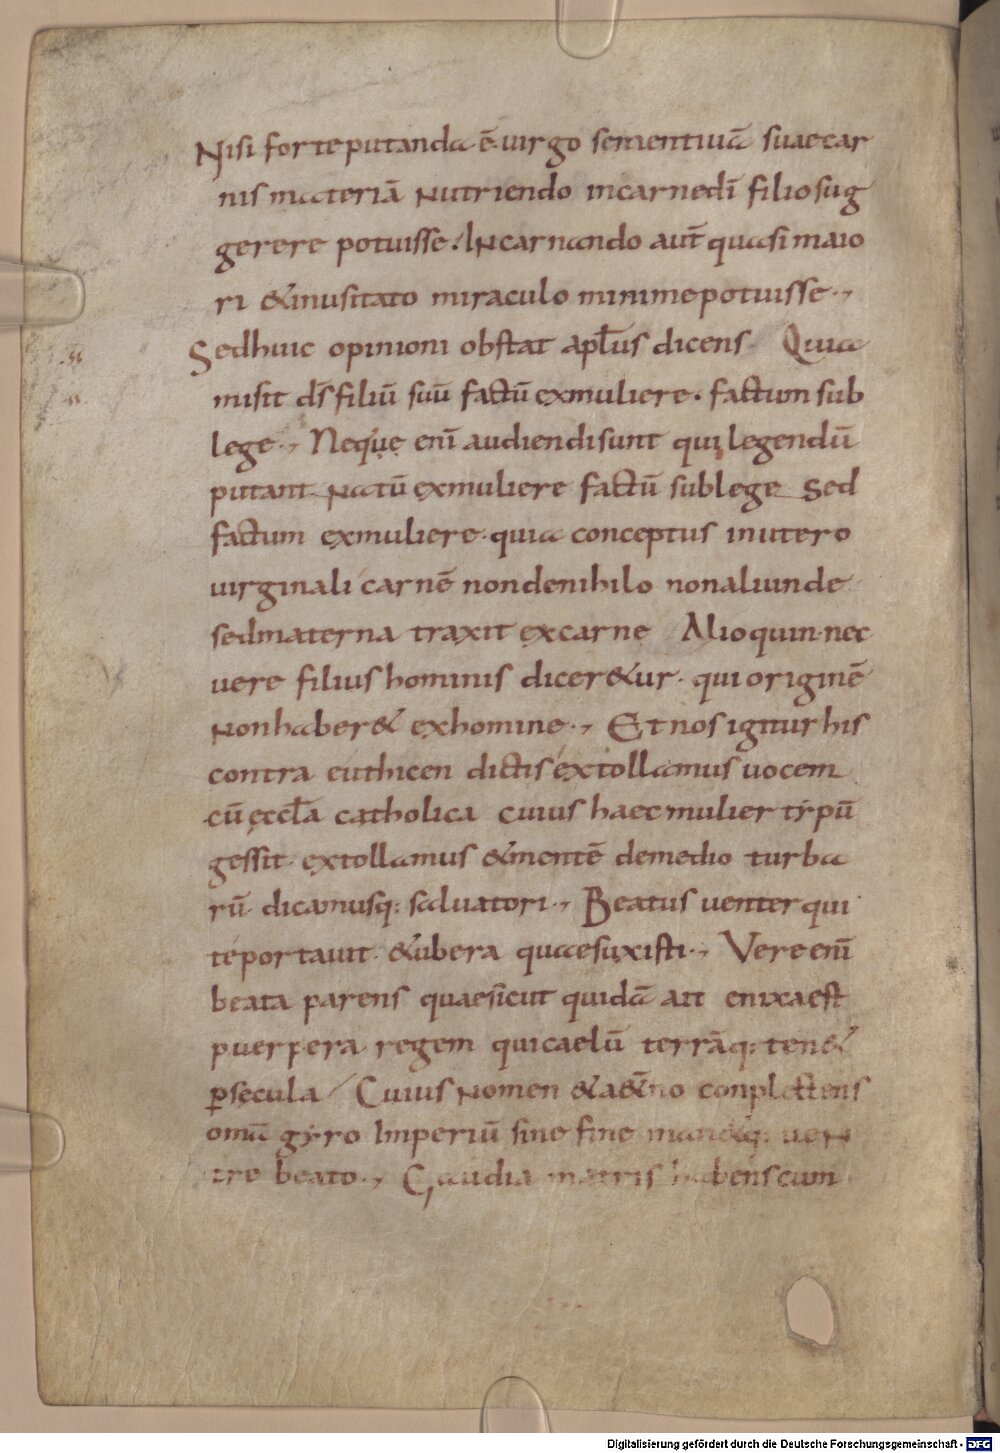 Nisi forte putanda ē uirgo sementiuā suae car
nis materiā nutriendo incarne dī filio sug
gerere potuisse. Incarnando aut̄ quasi maio
ri &inusitato miraculo minime potuisse.,
Sed huic opinioni obstat apl̄us dicens Quia
misit d̄s filiū suū factū exmuliere. factum sub
lege., Neque enī audiendi sunt qui legendū
putant natū exmuliere factū sublege Sed
factum exmuliere. quia conceptus inutero
uirginali carnē non denihilo non aliunde
sed materna traxit excarne Alioquin. nec
uere filius hominis dicer&ur. qui originē
non haber& exhomine., Et nos igitur his
contra euthicen dictis extollamus uocem
cū ęccl̄a catholica cuius haec mulier typū
gessit. extollamus &mentē demedio turba
rū. dicamusq: saluatori., Beatus uenter qui
te portauit. &ubera quae suxisti., Vere enī
beata parens quae sicut quidā ait enixa est
puerpera regem qui caelū terrāq: ten&
p̱ sęcula / Cuius nomen &a&̄no conplectens
omā gyro Imperiū sine fine man&q: uen
tre beato., Gaudia matris habens cum
Digitalisierung gefördert durch die Deutsche Forschungsgemeinschaft - DFG